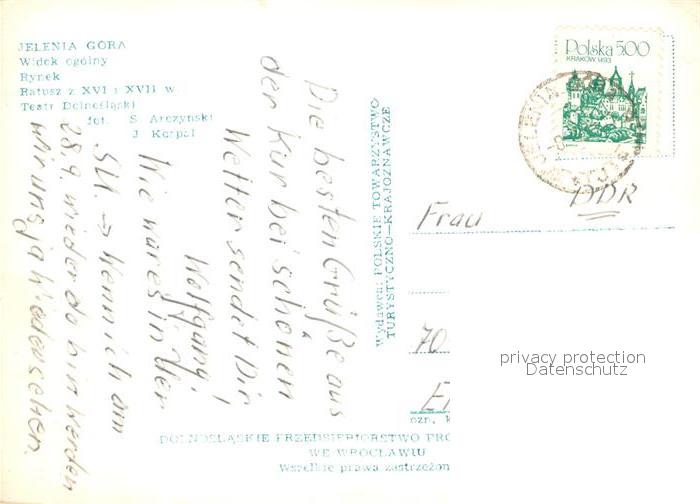 JELENIA GÓRA
Widok ogólny
Rynek
Ratusz z XVI i XVII w
Teatr Dolnośląski
fot. S Arczyński
J Korpal
Polska 5.00
KRAKÓW 1493
JELENIA
DDR
Die besten Grüße aus
der Kur bei schönen
Wetter sendet Dir
Wolfgang!
Wie war es in der
SU. → Wenn ich am
28.9. wieder da bin werden
wir uns ja wiedersehen.
Wydawca: POLSKIE TOWARZYSTWO
TURYSTYCZNO-KRAJOZNAWCZE
Frau
70
privacy protection
Datenschutz
DOLNOŚLĄSKIE PRZEDSIĘBIORSTWO PRO
WE WROCŁAWIU
Wszelkie prawa zastrzeżon